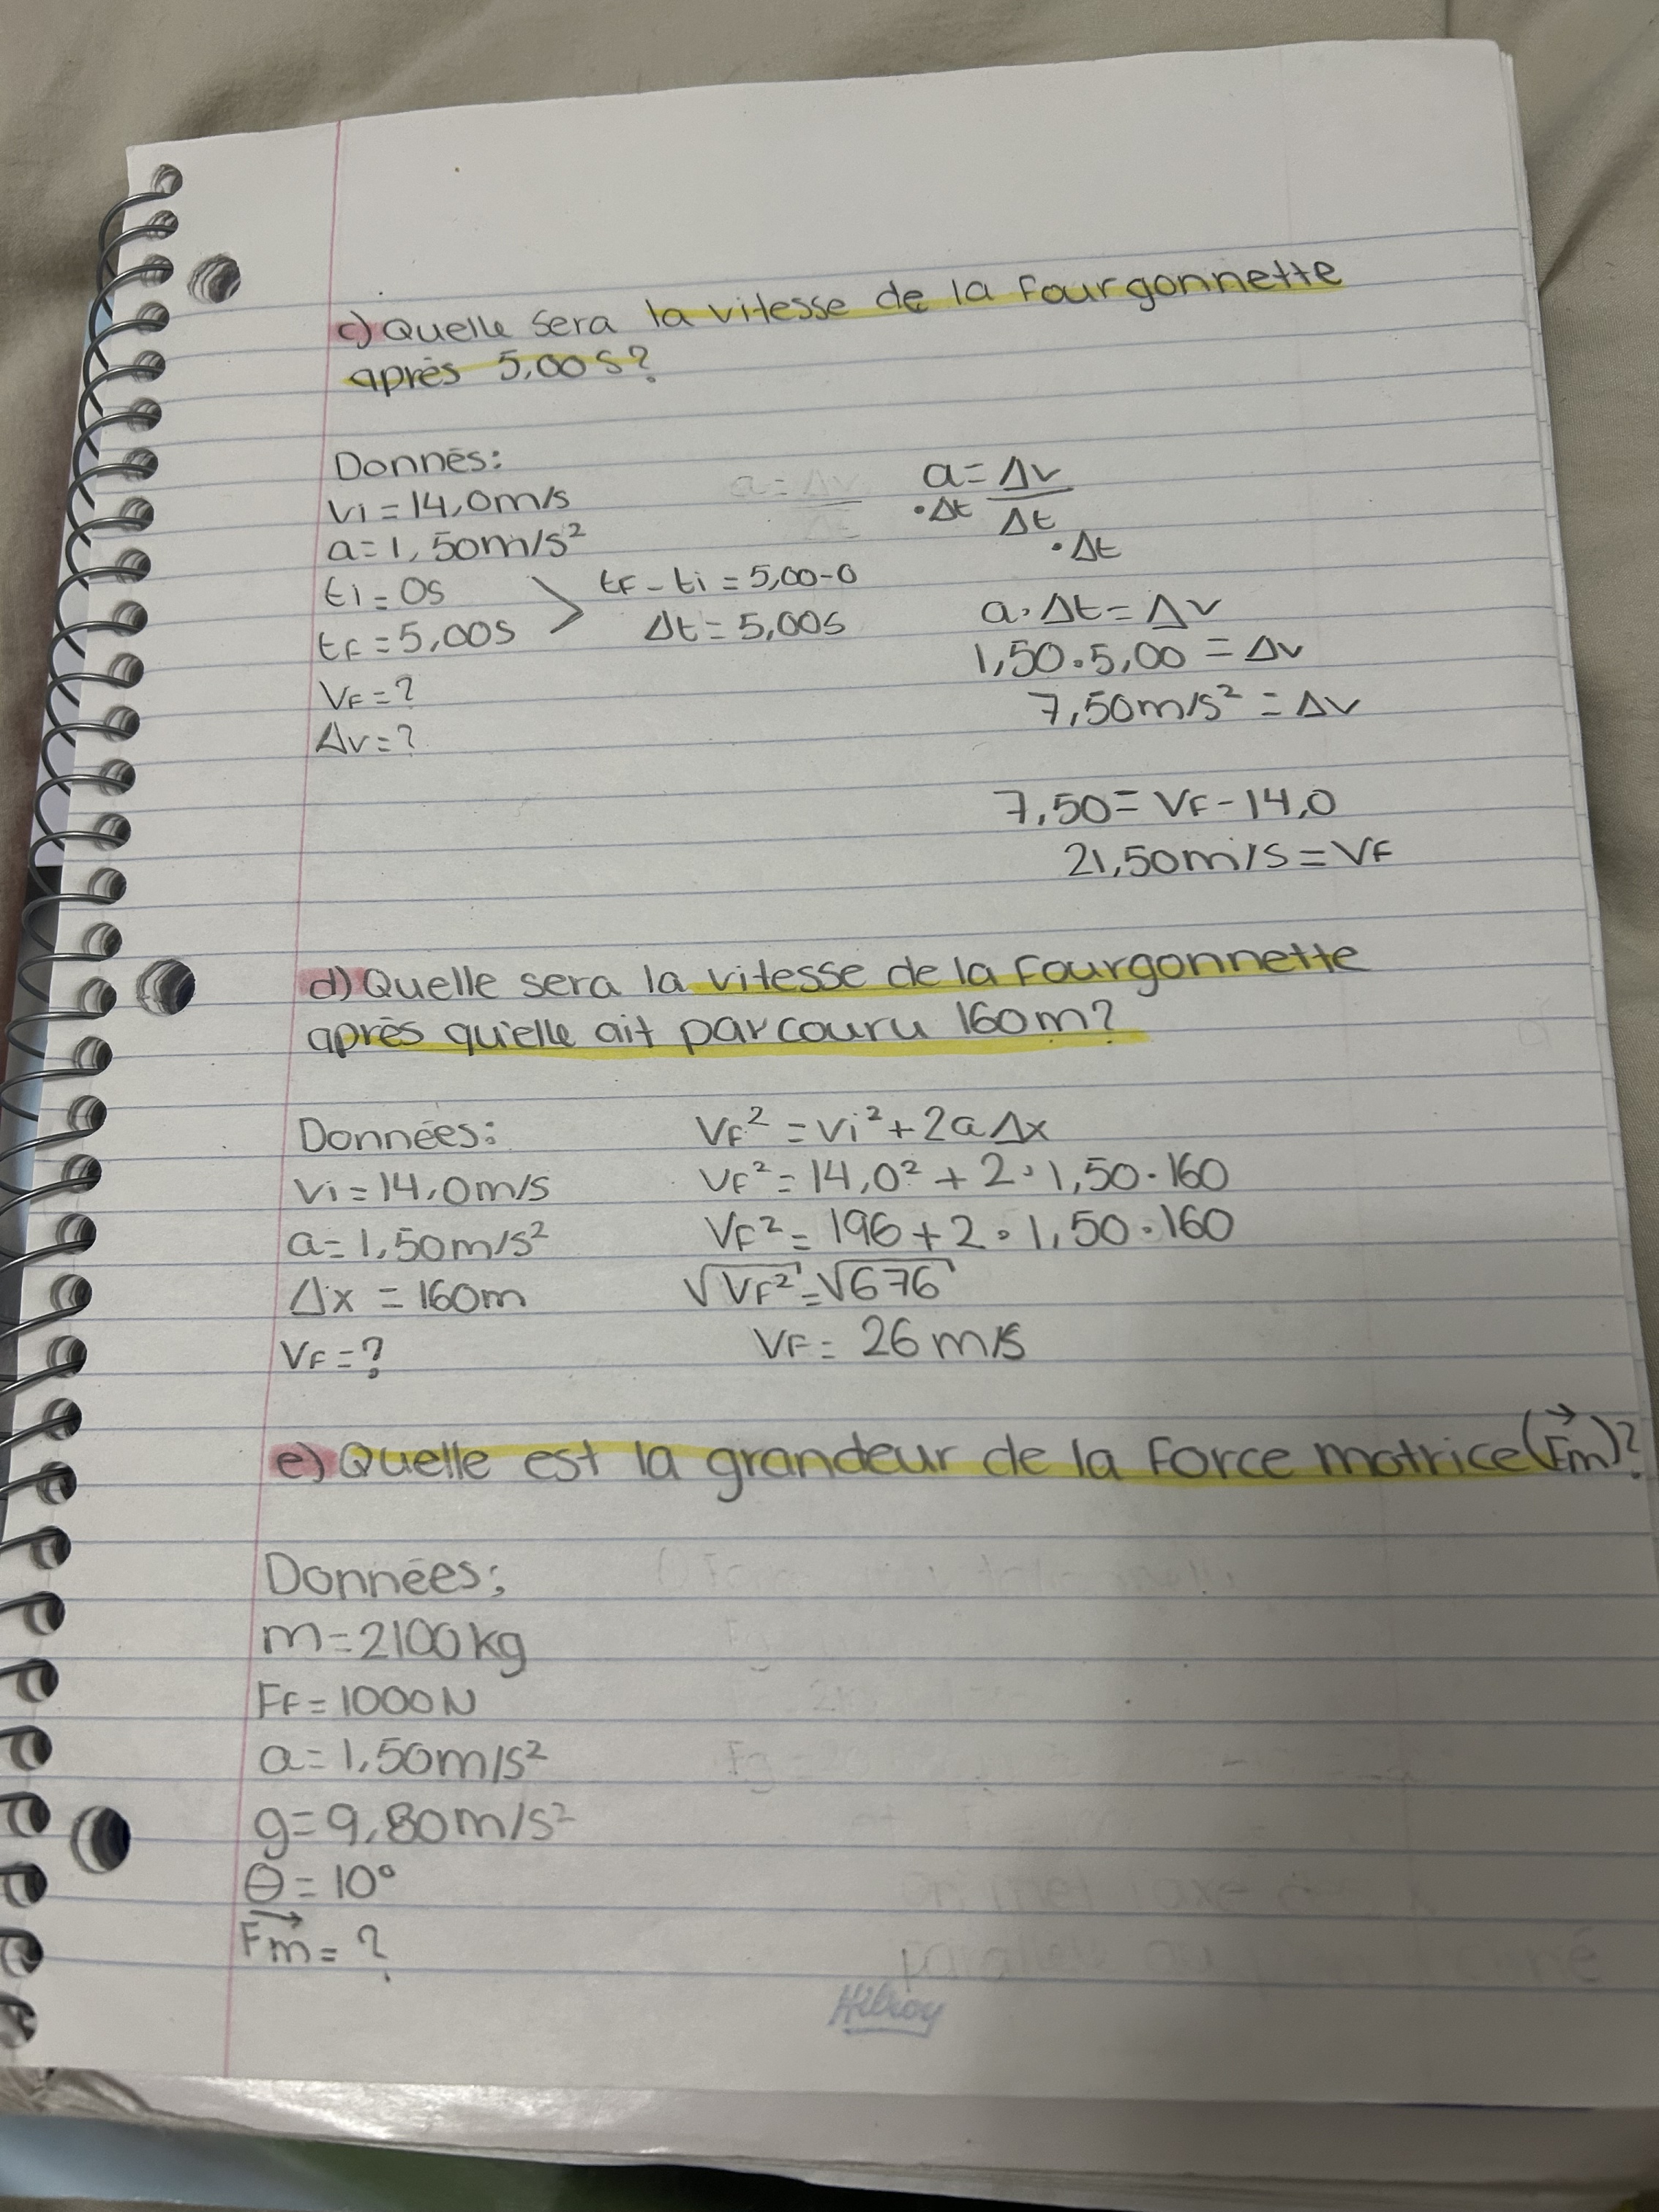 c) Quelle sera la vitesse de la fourgonnette
après 5,00s?
Donnés:
Vi = 14,0m/s
a = 1,50m/s²
ti = 0s
tF = 5,00s
VF = ?
Δv = ?
tF - ti = 5,00-0
Δt = 5,00s
a = Δv
•Δt Δt
•Δt
a • Δt = Δv
1,50 • 5,00 = Δv
7,50m/s² = Δv
7,50 = VF - 14,0
21,50m/s = VF
d) Quelle sera la vitesse de la fourgonnette
après qu'elle ait parcouru 160m?
Données:
Vi = 14,0m/s
a = 1,50m/s²
Δx = 160m
VF = ?
VF² = Vi² + 2aΔx
VF² = 14,0² + 2 • 1,50 • 160
VF² = 196 + 2 • 1,50 • 160
√VF² = √676
VF = 26 m/s
e) Quelle est la grandeur de la force motrice (Fm)?
Données:
m = 2100kg
FF = 1000N
a = 1,50m/s²
g = 9,80m/s²
θ = 10°
Fm = ?
Hilroy